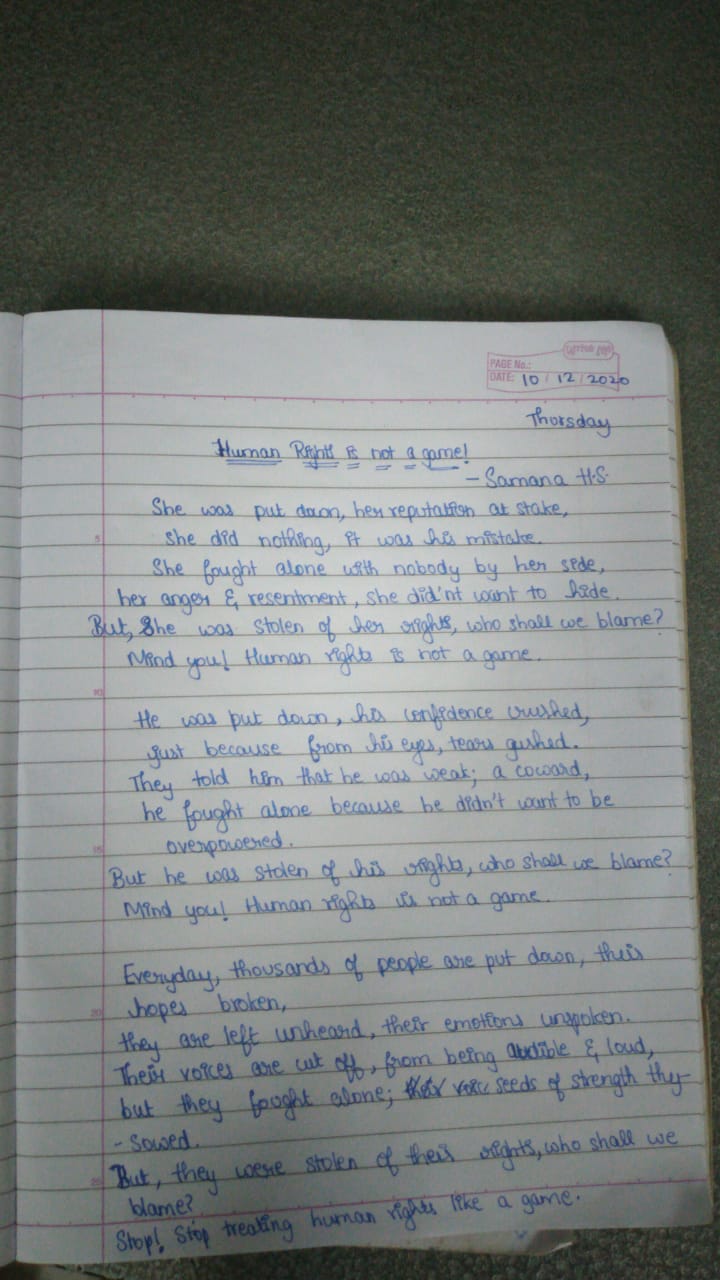 PAGE No.:
DATE: 10 / 12 / 2020
Thursday
Human Rights is not a game!
- Samana H.S.
She was put down, her reputation at stake,
she did nothing, it was his mistake.
She fought alone with nobody by her side,
her anger & resentment, she did'nt want to hide.
But, She was stolen of her rights, who shall we blame?
Mind you! Human rights is not a game.
He was put down, his confidence crushed,
just because from his eyes, tears gushed.
They told him that he was weak; a coward,
he fought alone because he didn't want to be
overpowered.
But he was stolen of his rights, who shall we blame?
Mind you! Human rights is not a game.
Everyday, thousands of people are put down, their
hopes broken,
they are left unheard, their emotions unspoken.
Their voices are cut off, from being audible & loud,
but they fought alone; seeds of strength they
- sowed.
But, they were stolen of their rights, who shall we
blame?
Stop! Stop treating human rights like a game.
5
10
15
20
25